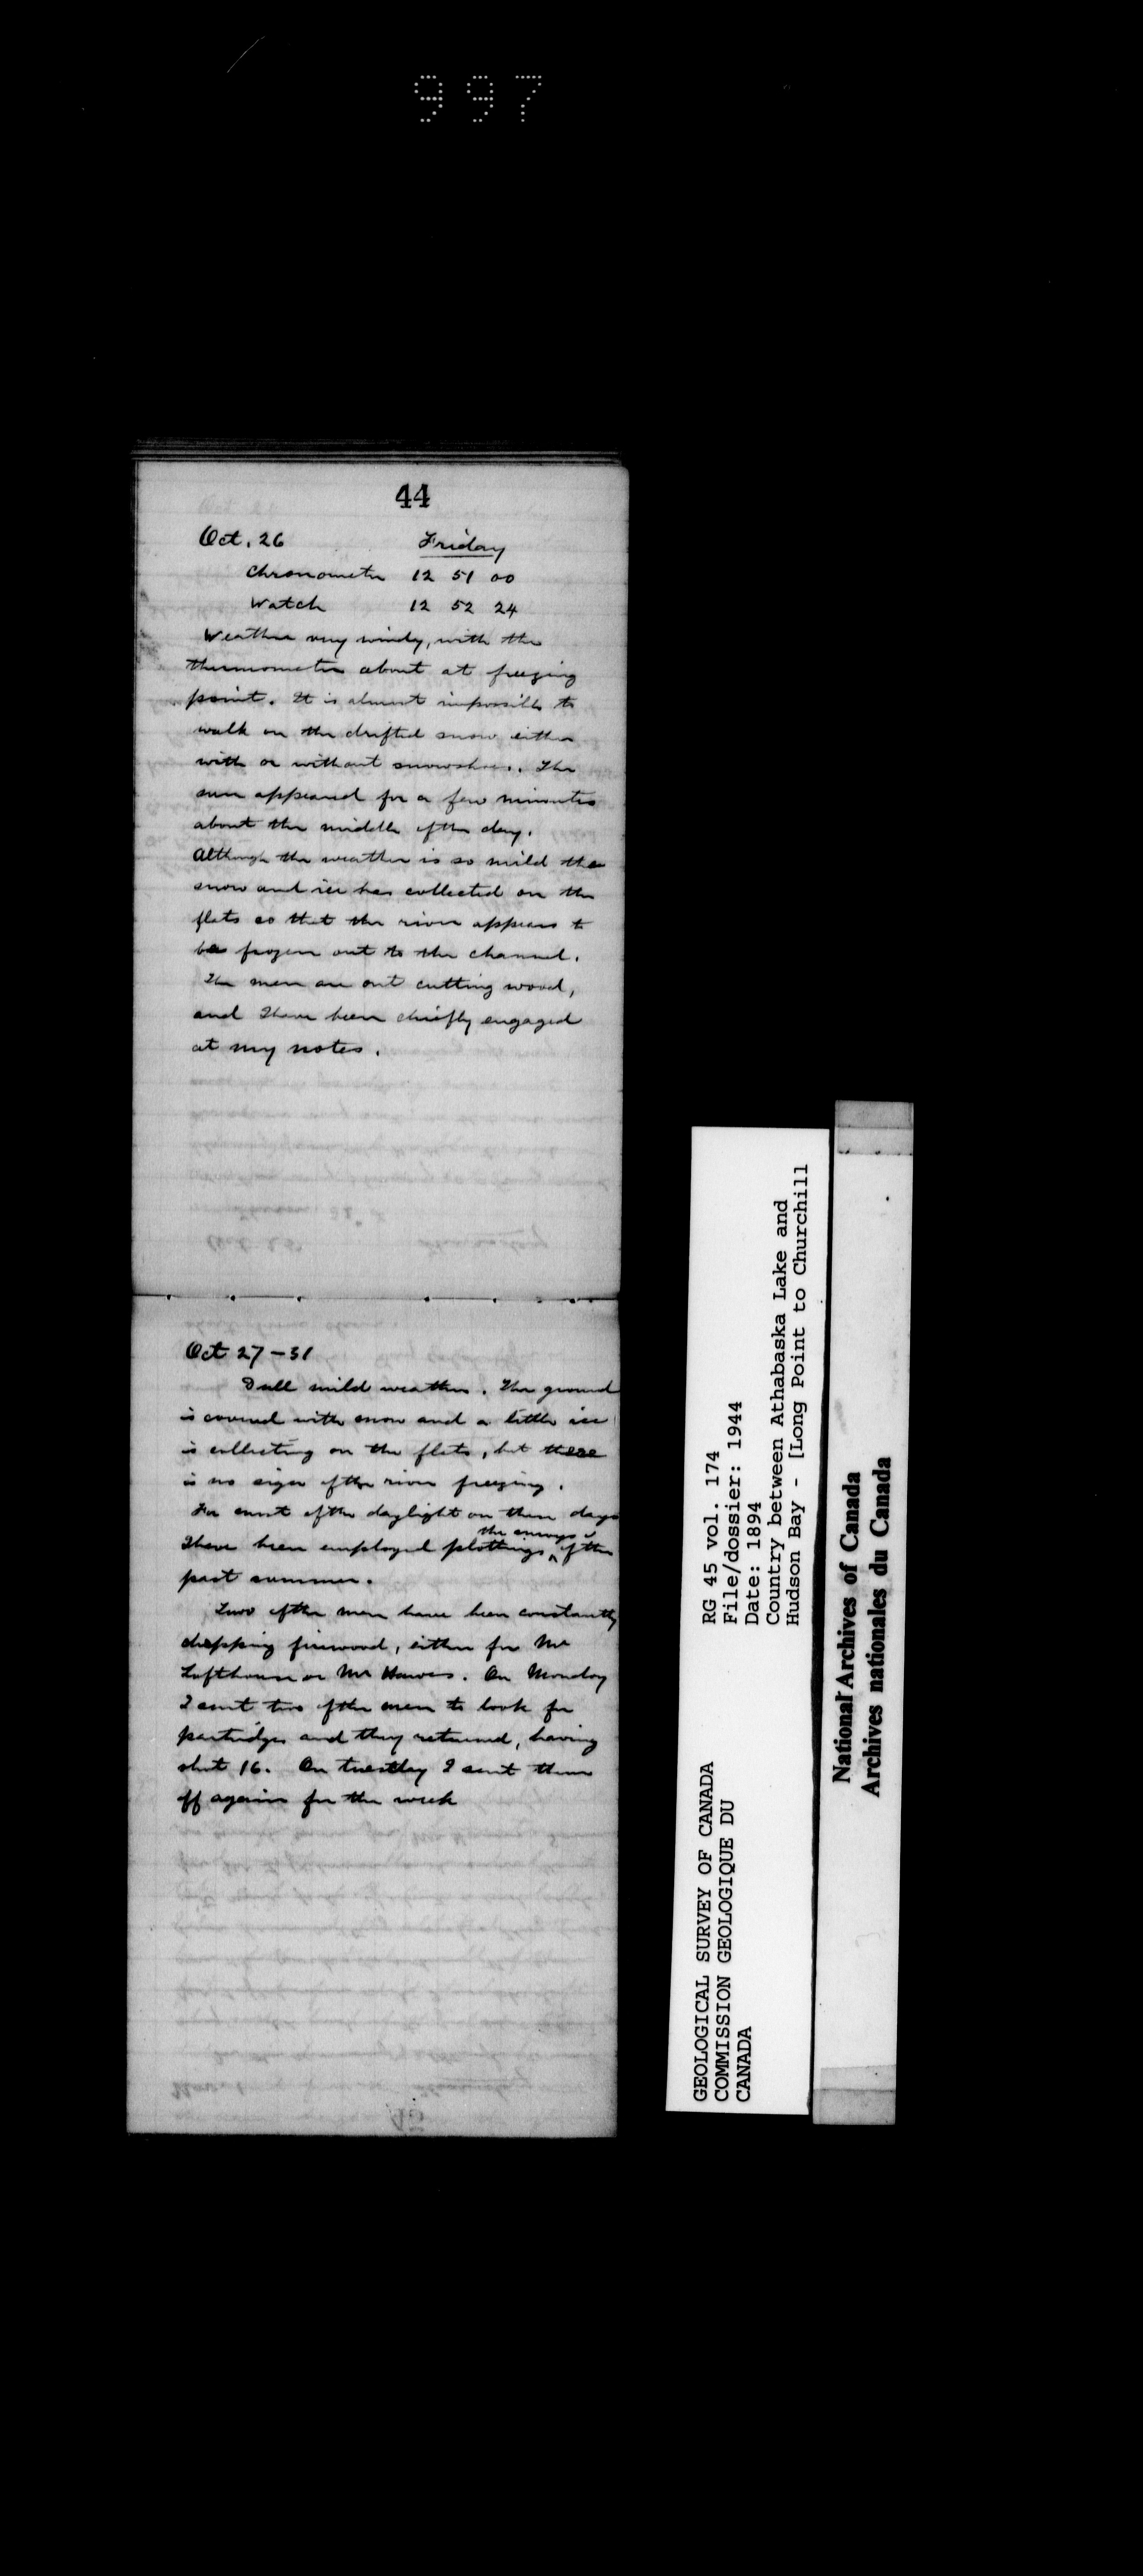 997
44
Oct. 26 Friday
Chronometer 12 51 00
Watch 12 52 24
Weather very windy, with the
thermometer about at freezing
point. It is almost impossible to
walk on the drifted snow either
with or without snowshoes. The
sun appeared for a few minutes
about the middle of the day.
Although the weather is so mild the
snow and ice has collected on the
flats so that the river appears to
be frozen out to the channel.
The men are out cutting wood,
and I have been chiefly engaged
at my notes.
Oct 27-31
Dull mild weather. The ground
is covered with snow and a little ice
is collecting on the flats, but there
is no sign of the river freezing.
For most of the daylight on these days
the surveys
I have been employed plotting of the
past summer.
Two of the men have been constantly
chopping firewood, either for Mr
Lofthouse or Mr Hawes. On Monday
I sent two of the men to look for
partridges and they returned, having
shot 16. On tuesday I sent them
off again for the week
GEOLOGICAL SURVEY OF CANADA
COMMISSION GEOLOGIQUE DU
CANADA
RG 45 vol. 174
File/dossier: 1944
Date: 1894
Country between Athabaska Lake and
Hudson Bay - [Long Point to Churchill
National Archives of Canada
Archives nationales du Canada